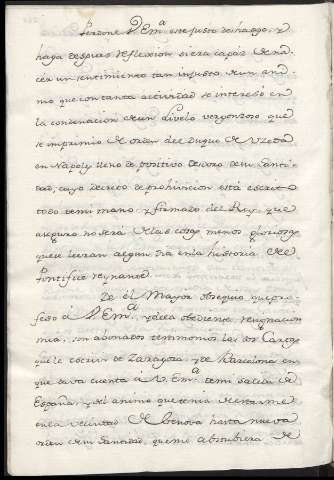 Perdone V. Em.ª este justo desahogo, y
haga despues reflexion si era capaz de na-
cer un sentimiento tan injusto de un ani-
mo que con tanta actividad se interesò en
la condenacion de un livelo vergonzoso que
se imprimio de orden del Duque de Uzeda
en Napoles lleno de positivo desdoro de su Santi-
dad, cuyo decreto de prohivicion està escrito
todo de mi mano y firmado del Rey, que
aseguro no serà de las cosas menos gloriosas
que se leeran algun dia en la historia del
Pontifice reynante.
De el Mayor obsequio que pro-
feso à V. Em.ª y de la obediente resignacion
mia, son abonados testimonios las dos Cartas
que le escriví de Zaragoza y de Barcelona en
que dava cuenta à V. Em.ª de mi salida de
España, y del animo que tenia de estarme
en la vecindad de Genova hasta nueva
orden de su Santidad, que me absolviera de